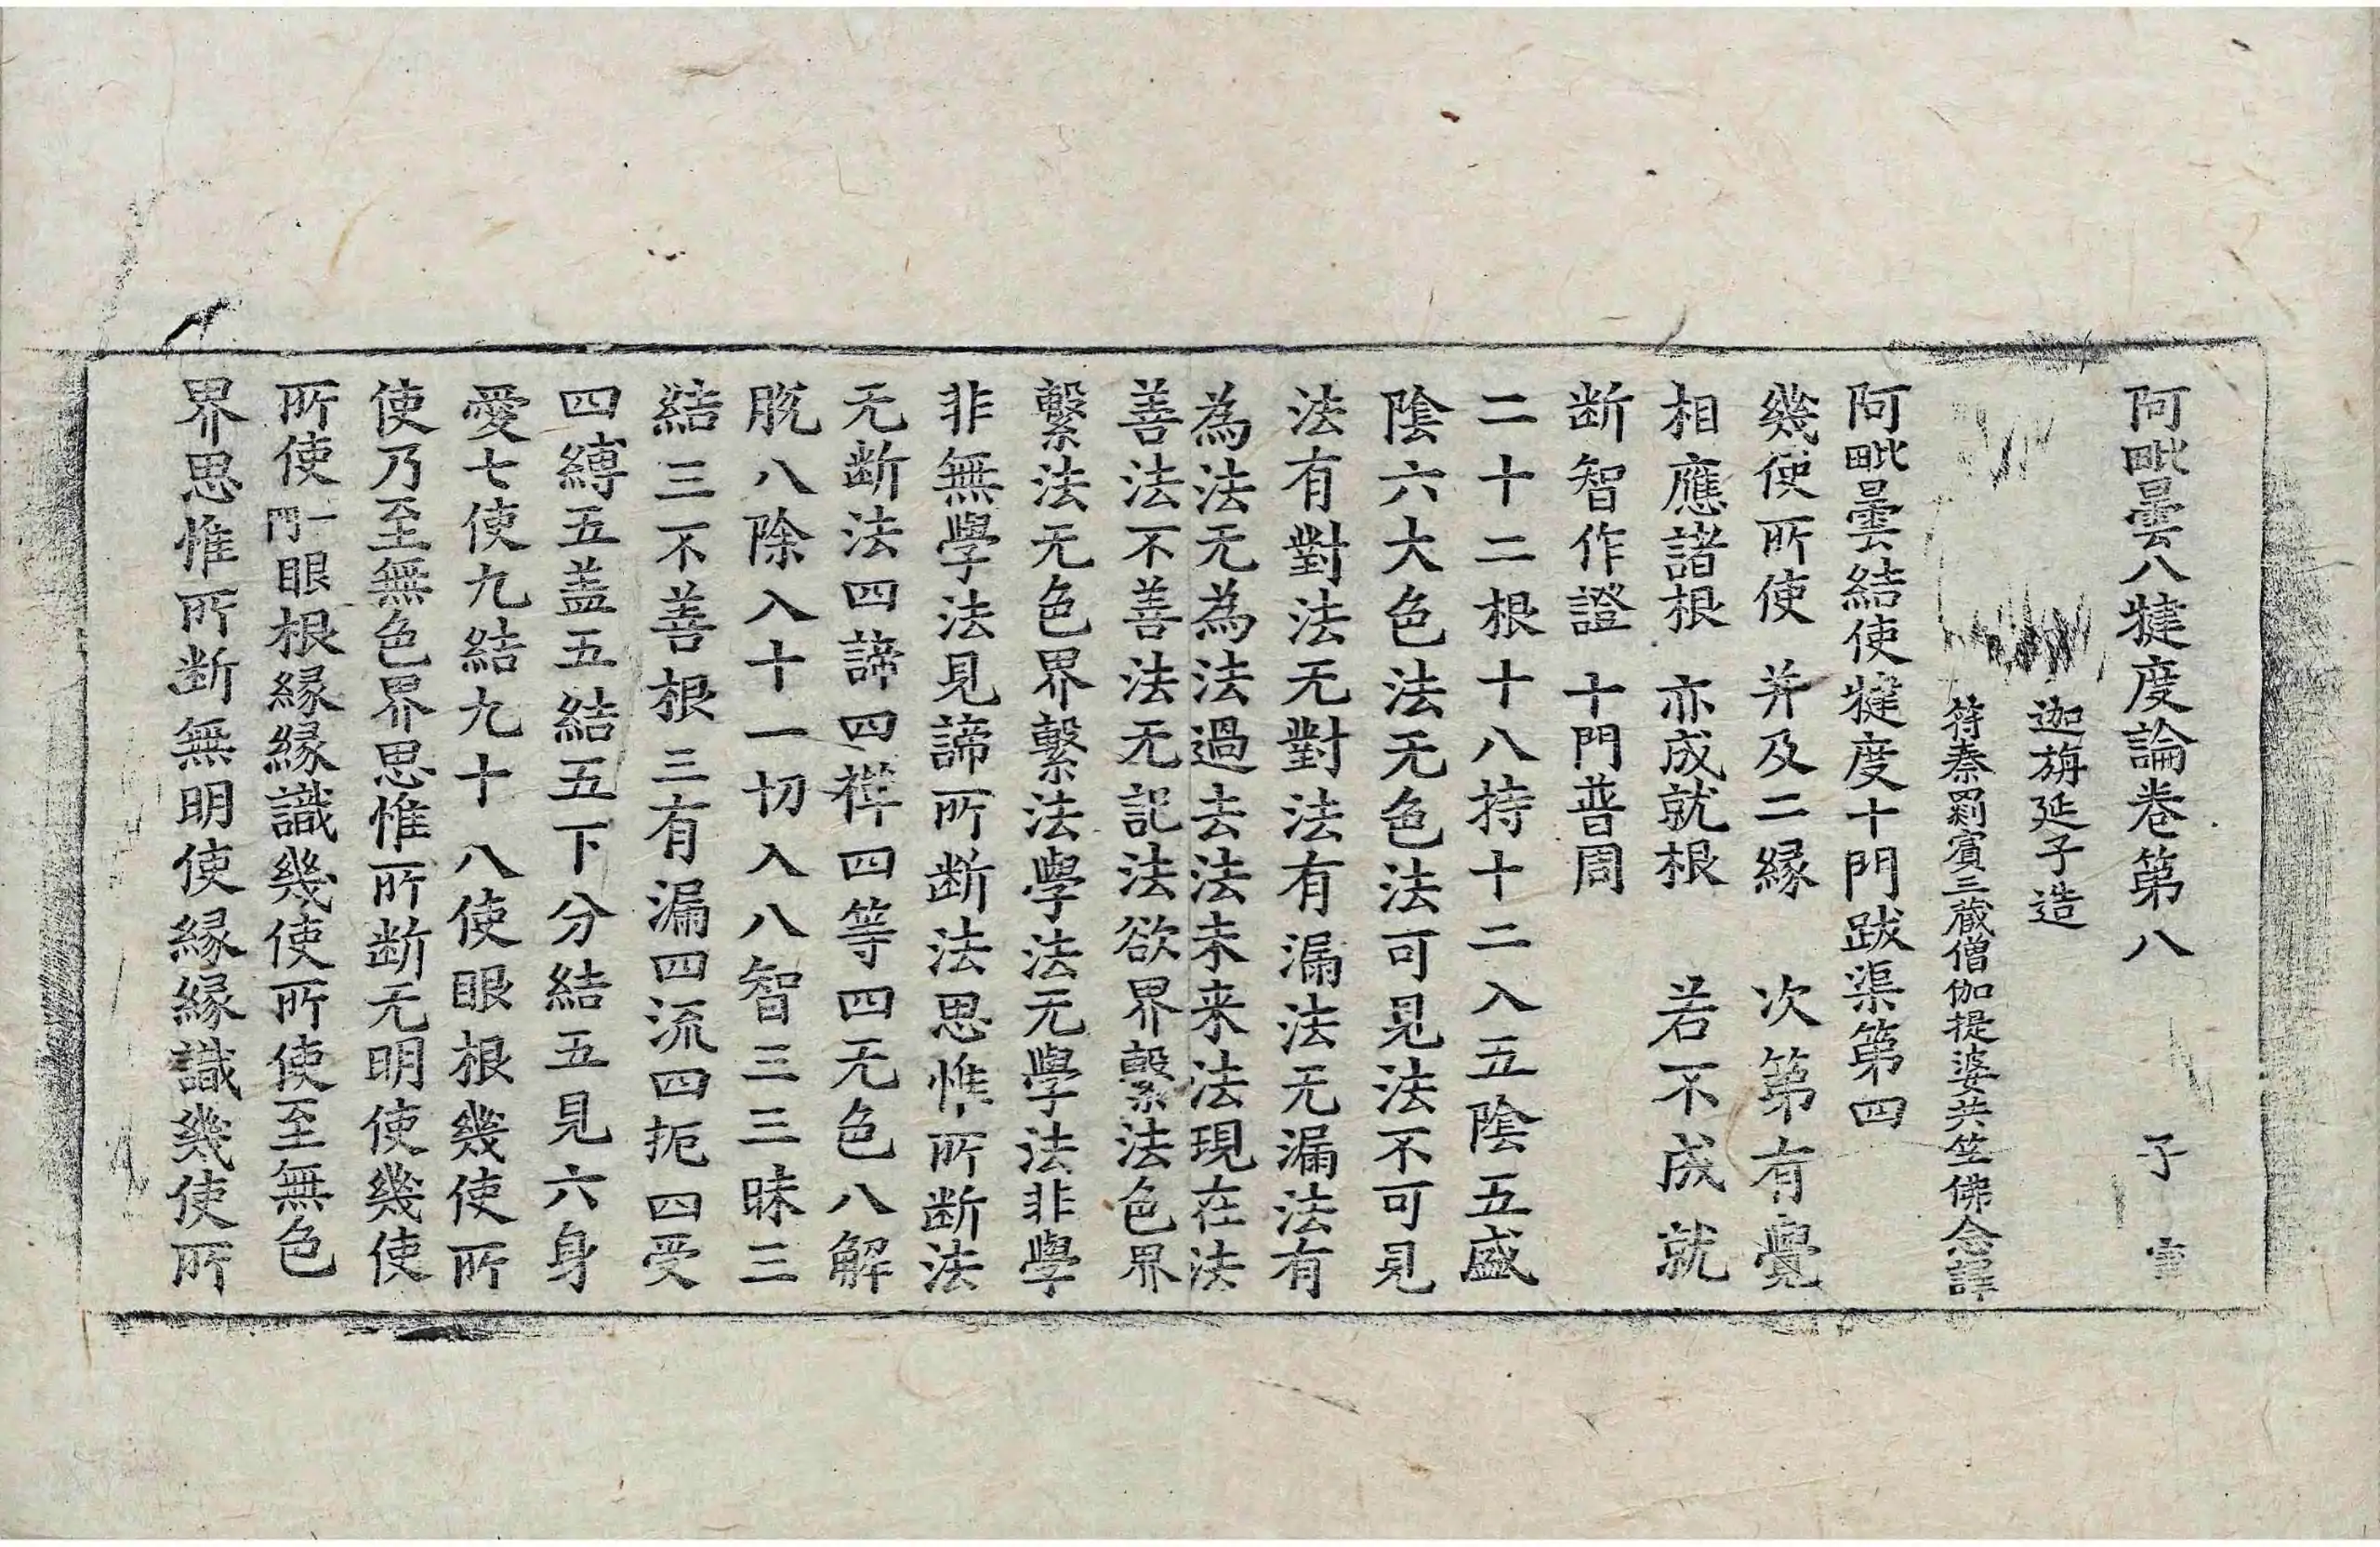 阿毗曇八犍度論卷第八 子
迦旃延子造
符秦罽賓三藏僧伽提婆共竺佛念譯
阿毗曇結使犍度十門跋渠第四
幾使所使 并及二緣 次第有覺
相應諸根 亦成就根 若不成就
断智作證 十門普周
二十二根十八持十二入五陰五盛
陰六大色法无色法可見法不可見
法有對法无對法有漏法无漏法有
為法无為法過去法未来法現在法
善法不善法无記法欲界繫法色界
繫法无色界繫法學法无學法非學
非無學法見諦所断法思惟所断法
无断法四諦四禪四等四无色八解
脫八除入十一切入八智三三昧三
結三不善根三有漏四流四扼四受
四縛五盖五結五下分結五見六身
愛七使九結九十八使眼根幾使所
使乃至無色界思惟所断无明使幾使
所使一門眼根緣緣識幾使所使至無色
界思惟所断無明使緣緣識幾使所